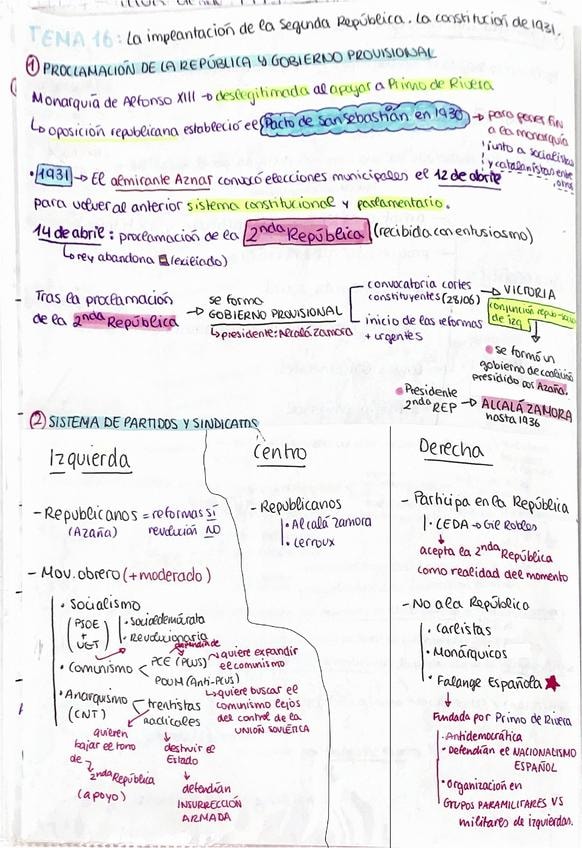 TEMA 16: La implantación de la Segunda República. La constitución de 1931.
① PROCLAMACIÓN DE LA REPÚBLICA Y GOBIERNO PROVISIONAL
Monarquía de Alfonso XIII → deslegitimada al apoyar a Primo de Rivera
↳ oposición republicana estableció el Pacto de San Sebastián en 1930 → para poner fin
a la monarquía
junto a socialistas
y catalanistas entre
otros
· 1931 → El almirante Aznar convocó elecciones municipales el 12 de abril
para volver al anterior sistema constitucional y parlamentario.
14 de abril: proclamación de la 2nda República (recibida con entusiasmo)
↳ rey abandona (exiliado)
Tras la proclamación
de la 2nda República → se formó
GOBIERNO PROVISIONAL
↳ presidente: Alcalá Zamora
convocatoria cortes
constituyentes (28/06) → VICTORIA
conjunción repu
de izq
inicio de las reformas
+ urgentes
se formó un
gobierno de coalición
presidido por Azaña.
Presidente
2nda REP → ALCALÁ ZAMORA
hasta 1936
② SISTEMA DE PARTIDOS Y SINDICATOS
Izquierda
- Republicanos = reformas sí
(Azaña) revolución NO
- Mov. obrero (+ moderado)
· Socialismo
(PSOE + UGT)
· Socialdemócrata
· Revolucionaria
· Comunismo < PCE (PCUS)
POUM (Anti-PCUS)
quiere expandir
el comunismo
↳ quiere buscar el
comunismo lejos
del control de la
UNIÓN SOVIÉTICA
· Anarquismo
(CNT)
treintistas
radicales
quieren
bajar el tono
de
2nda República
(apoyo)
destruir el
Estado
defendían
INSURRECCIÓN
ARMADA
Centro
- Republicanos
· Alcalá Zamora
· Lerroux
Derecha
- Participa en la República
· CEDA → Gil Robles
acepta la 2nda República
como realidad del momento
- No a la República
· Carlistas
· Monárquicos
· Falange Española ★
Fundada por Primo de Rivera
· Antidemocrática
· Defendían el NACIONALISMO
ESPAÑOL
· Organización en
GRUPOS PARAMILITARES VS
militares de izquierdas.